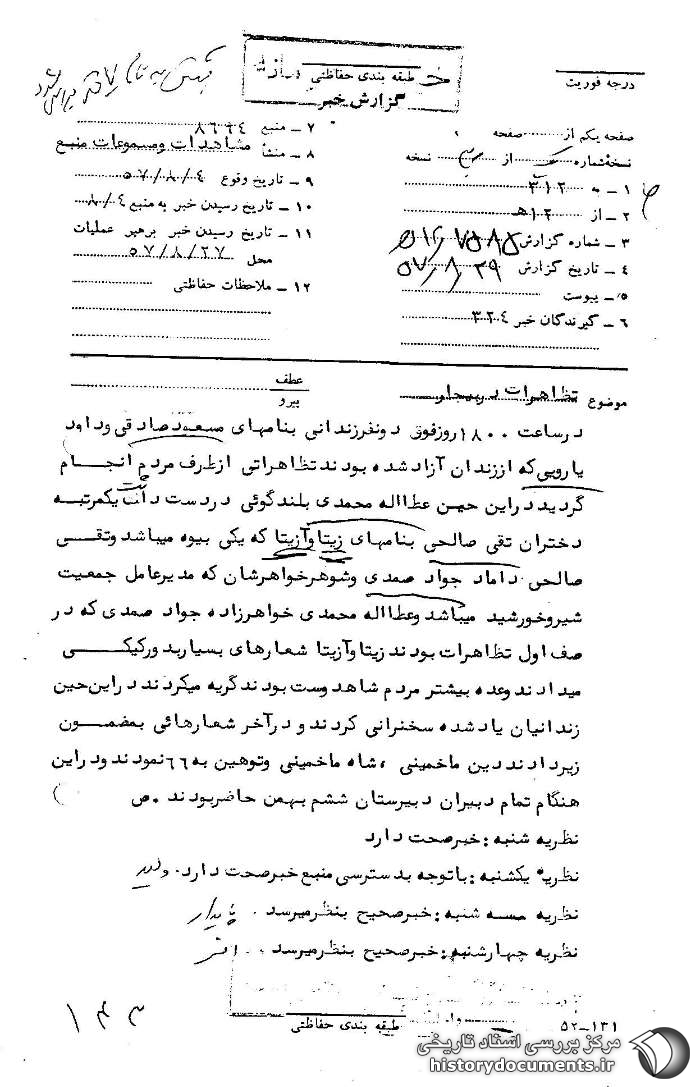 درجه فوریت
طبقه بندی حفاظتی
گزارش خبر
صفحه یکم از صفحه
نسخه شماره از نسخه
۱ ـ به ۳۱۲
۲ ـ از ۱۲ ه‍
۳ ـ شماره گزارش
۴ ـ تاریخ گزارش ۵۷/۸/۲۹
۵ ـ پیوست
۶ ـ گیرندگان خبر ۳۲۴
۷ ـ منبع
۸ ـ منشأ مشاهدات ومسموعات منبع
۹ ـ تاریخ وقوع ۵۷/۸/۴
۱۰ ـ تاریخ رسیدن خبر به منبع ۸/۴
۱۱ ـ تاریخ رسیدن خبر برهبر عملیات
محل ۵۷/۸/۲۷
۱۲ ـ ملاحظات حفاظتی
موضوع تظاهرات در بیجار
عطف
پیرو
درساعت ۱۸۰۰ روزفوق دونفرزندانی بنامهای مسعود صادقی وداود
یارویی که اززندان آزاد شده بودند تظاهراتی ازطرف مردم انجام
گردید دراین حین عطااله محمدی بلندگوئی دردست داشت یکمرتبه
دختران تقی صالحی بنامهای زیتا وآزیتا که یکی بیوه میباشد وتقی
صالحی داماد جواد صمدی وشوهرخواهرشان که مدیرعامل جمعیت
شیروخورشید میباشد وعطااله محمدی خواهرزاده جواد صمدی که در
صف اول تظاهرات بودند زیتا وآزیتا شعارهای بسیاربد ورکیکی
میدادند وعده بیشتر مردم شاهدوست بودند گریه میکردند دراین حین
زندانیان یادشده سخنرانی کردند و درآخر شعارهائی بمضمون
زیردادند دین ماخمینی ، شاه ماخمینی وتوهین به ۶۶ نمودند ودراین
هنگام تمام دبیران دبیرستان ششم بهمن حاضربودند . ص
نظریه شنبه : خبرصحت دارد
نظریه یکشنبه : باتوجه بدسترسی منبع خبرصحت دارد.
نظریه سه شنبه : خبرصحیح بنظرمیرسد . پایدار
نظریه چهارشنبه : خبرصحیح بنظرمیرسد .
طبقه بندی حفاظتی
۵۲ـ۱۳۱
۱۴۳
مرکز بررسی اسناد تاریخی
historydocuments.ir